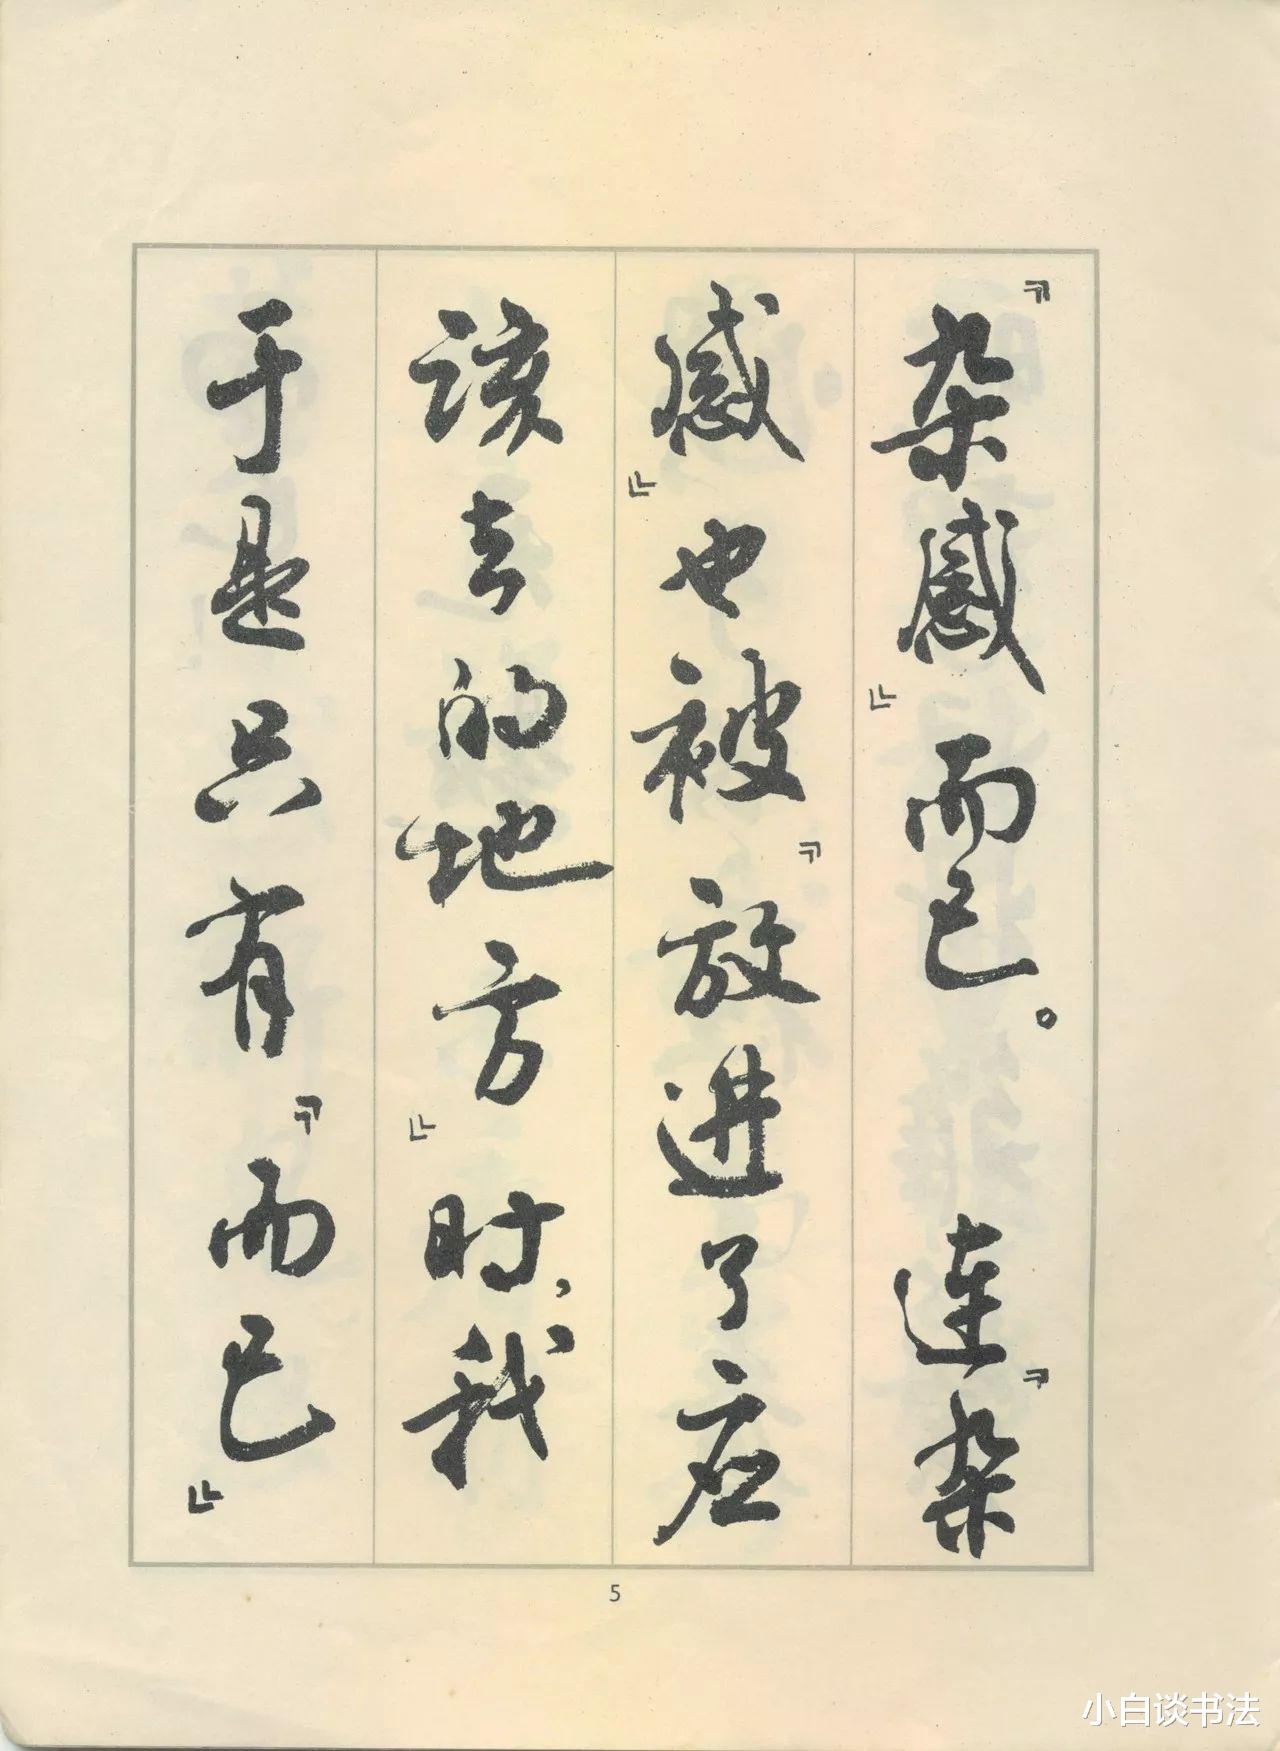 『杂感』而已。连『杂
感』也被『放进了应
该去的地方』时，我
于是只有『而已』
5
小白谈书法